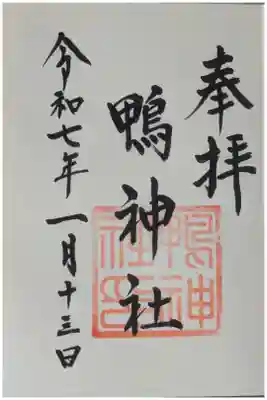 奉拝
鴨神社
鴨神社印
令和七年一月十三日